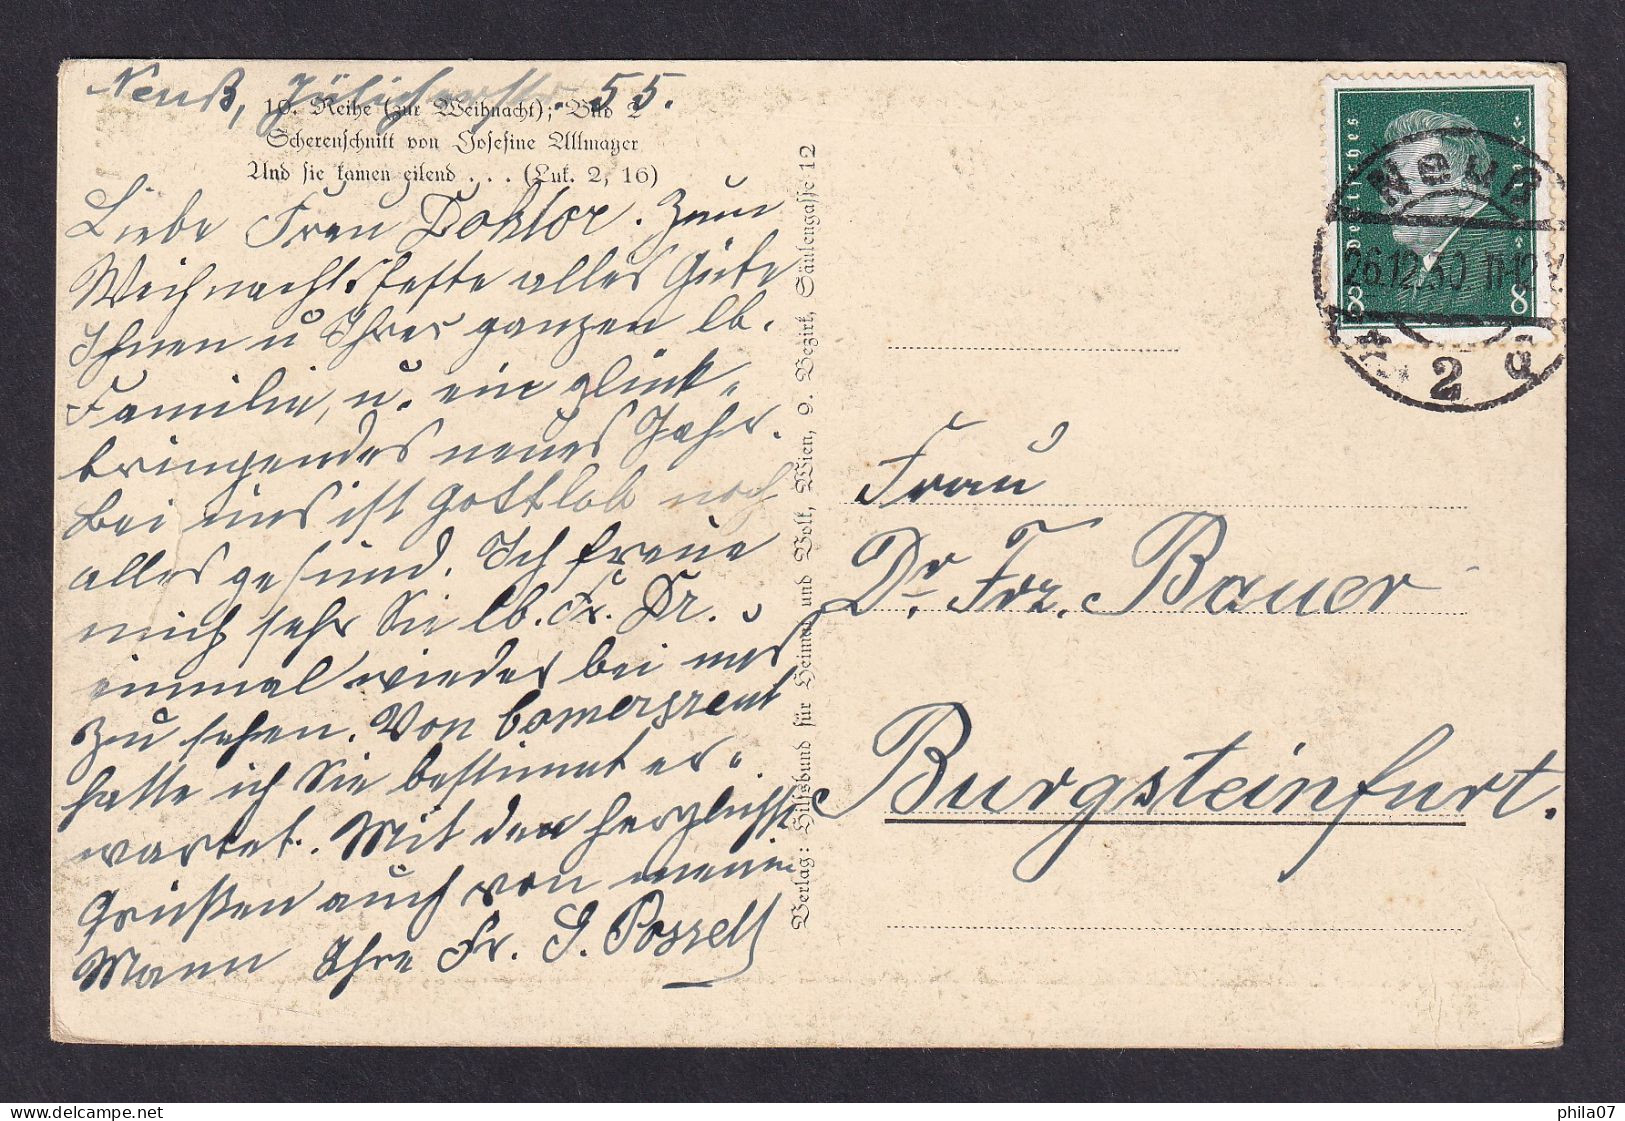 Neuß, Jülicherstr. 55.
10. Reihe (zur Weihnacht); Bild 2
Scherenschnitt von Josefine Allmayer
Und sie kamen eilend . . . (Luk. 2, 16)
Liebe Frau Doktor. Zum
Weihnachtsfeste alles Gute
Ihnen u Ihrer ganzen lb.
Familie, u. ein glück-
bringendes neues Jahr.
Bei uns ist Gottlob noch
alles gesund. Ich freue
mich sehr Sie lb. Fr. Dr.
einmal wieder bei uns
zu sehen. Von
hatte ich Sie bestimmt er-
wartet. Mit den herzlichst
Grüßen auch von meinem
Mann Ihre Fr. G. Posselt
Verlag: Hilfsbund für Heimat und Volk, Wien, 9. Bezirk, Säulengasse 12
Deutsches Reich
8 8
Neuß
26.12.30 11-12
2 d
Frau
Dr. Frz. Bauer
Burgsteinfurt.
phila07